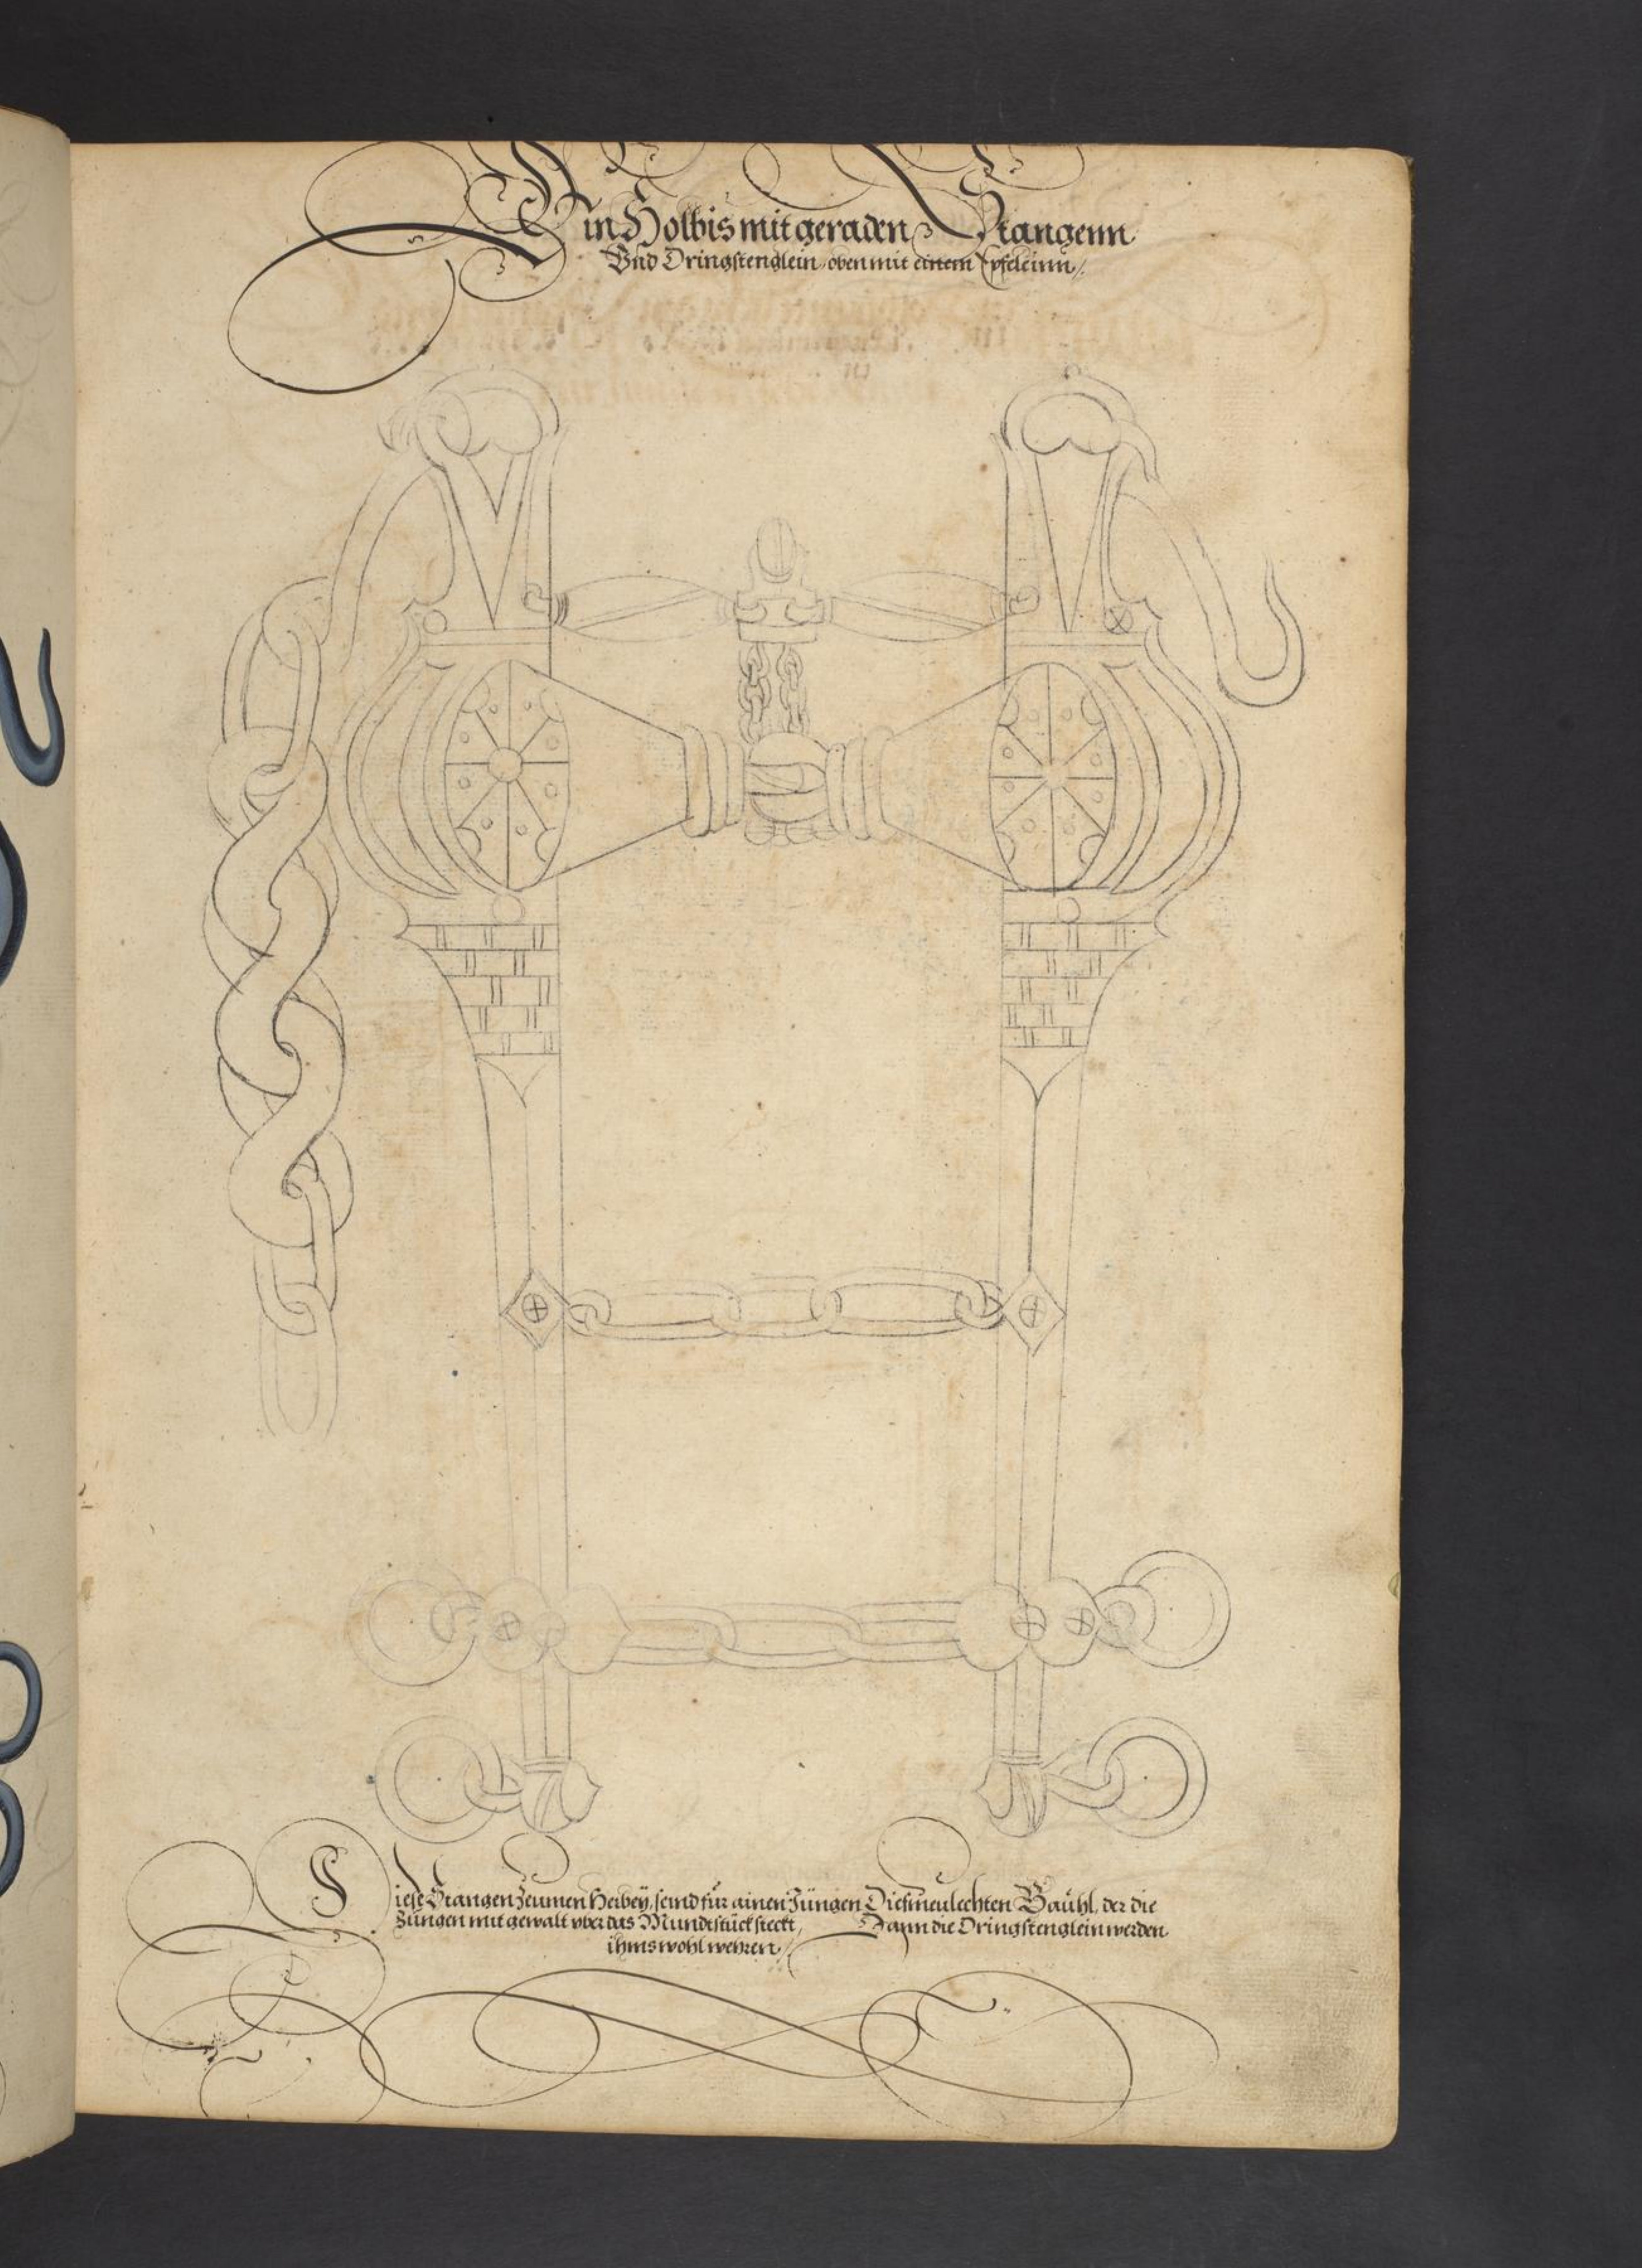 Ein Holbis mit geraden Stangenn
Vnd Dringstenglein oben mit einem Epfeleinn //
Diese Stangen Zeumen Herbeÿ, seind für ainen Jüngen Diefmeulechten Baühl, der die
Züngen mit gewalt vber das Mundtstück steckt, Dann die Dringstenglein werden
ihms wohl wehren //